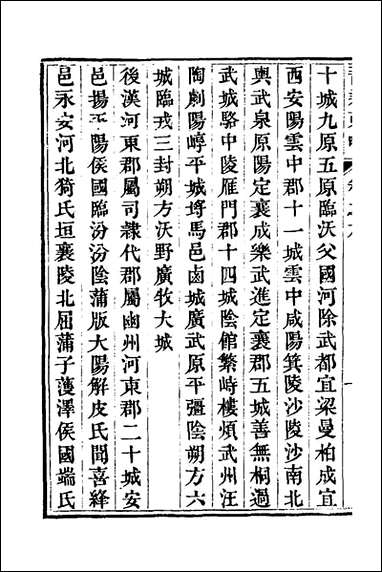 十城九原五原臨沃父國河除武都宜梁曼柏成宜
西安陽雲中郡十一城雲中咸陽箕陵沙陵沙南北
輿武泉原陽定襄成樂武進定襄郡五城善無桐過
武城駱中陵雁門郡十四城陰館繁峙樓煩武州汪
陶劇陽崞平城埓馬邑鹵城廣武原平彊陰朔方六
城臨戎三封朔方沃野廣牧大城
後漢河東郡屬司隸代郡屬幽州河東郡二十城安
邑揚平陽侯國臨汾汾陰蒲版大陽解皮氏聞喜絳
邑永安河北猗氏垣襄陵北屈蒲子濩澤侯國端氏